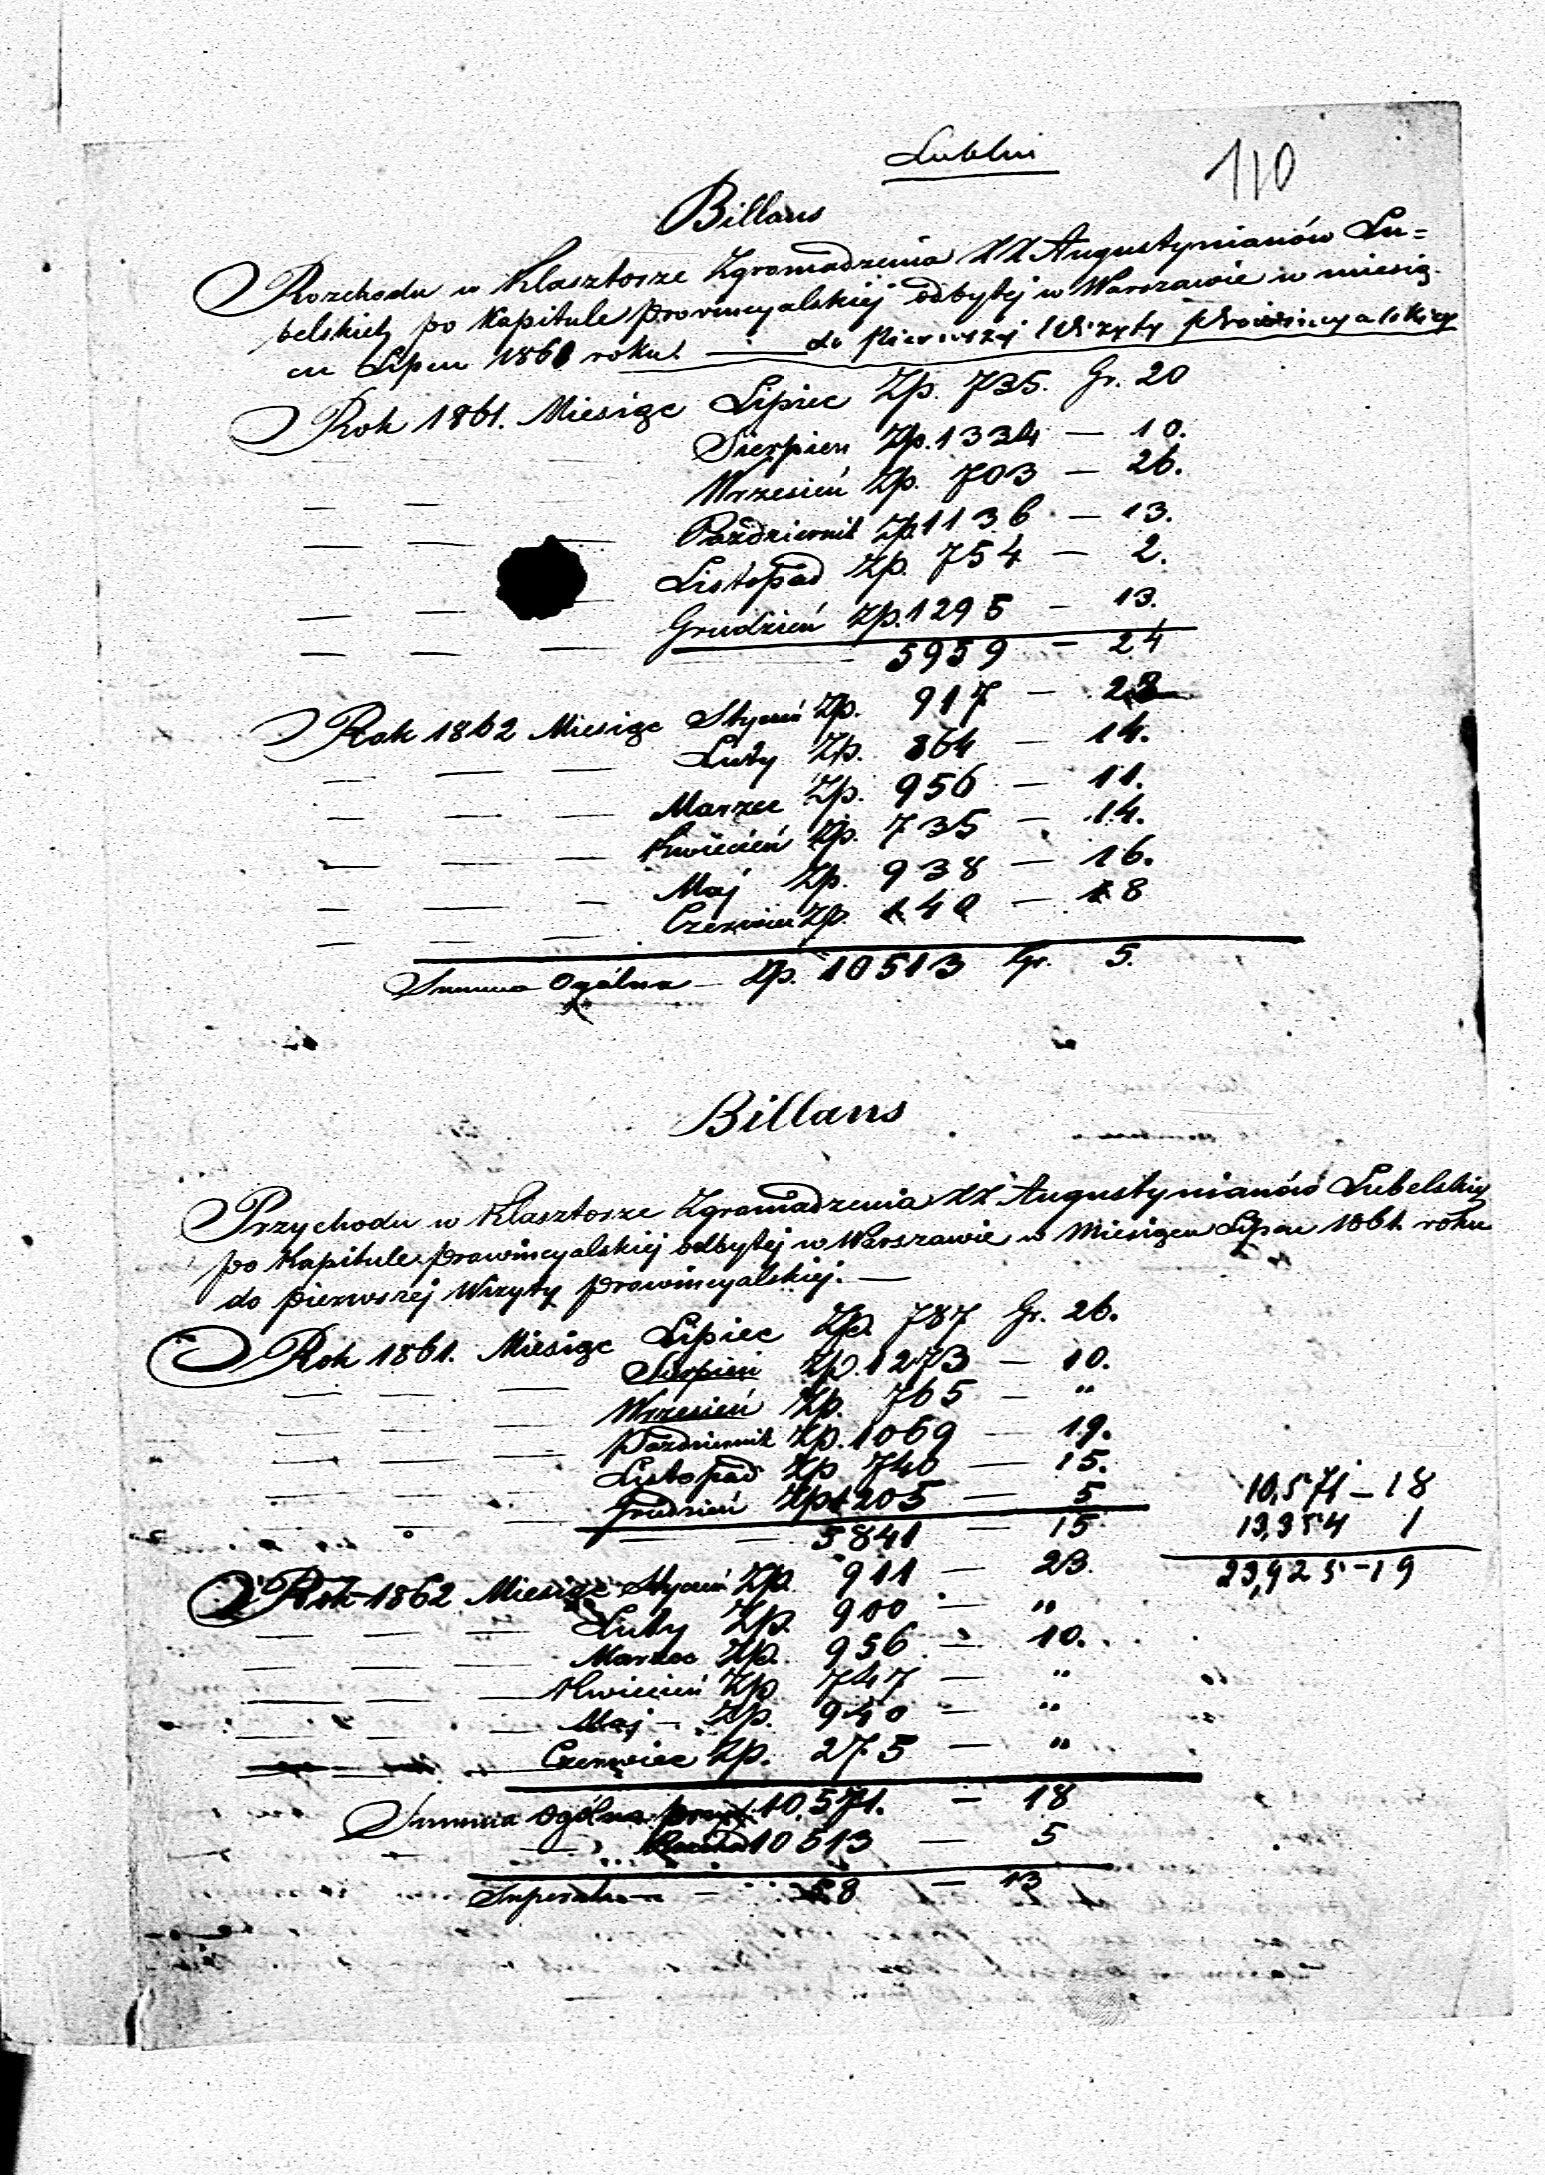 Lublin
110
Billans
Rozchodu w Klasztorze Zgromadzenia XX Augustynianów Lu=
belskich po Kapitule prowincyalskiej odbytej w Warszawie w miesią
cu Lipcu 1861 roku. — do pierwszej Wizyty Prowincyalskiej
Rok 1861. Miesiąc Lipiec Zp. 735. Gr. 20
Sierpien Zp. 1334 — 10.
— — Wrzesień Zp. 703 — 26.
— — Pazdziernik Zp. 1136 — 13.
— — Listopad Zp. 754 — 2.
— — — Grudzień Zp. 1295 — 13.
5959 — 24
Rok 1862 Miesiąc Styczeń Zp. 917 — 28
— — — Luty Zp. 864 — 14.
— — — Marzec Zp. 956 — 11.
— — — Kwiecień Zp. 735 — 14.
— — — Maj Zp. 938 — 16.
— — — Czerwiec Zp. 140 — 18
Summa Ogólna — Zp. 10513 Gr. 5.
Billans
Przychodu w Klasztorze Zgromadzenia XX Augustynianów Lubelskich
po Kapitule prowincyalskiej odbytej w Warszawie w Miesiącu Lipcu 1861 roku
do pierwszej Wizyty prowincyalskiej. —
Rok 1861. Miesiąc Lipiec Zp. 787 Gr. 26.
— — — Sierpień Zp. 1273 — 10.
— — — Wrzesień Zp. 765 — "
— — — Pazdziernik Zp. 1069 — 19.
— — — Listopad Zp 740 — 15.
— — — Grudzień Zp 1205 — 5
— — 5841 — 15
10,571 — 18
13,354 1
23,925 — 19
Rok 1862 Miesiąc Styczeń Zp. 911 — 23.
— — — Luty Zp. 900 — "
— — — Marzec Zp. 956 — 10.
— — — Kwiecień Zp 747 — "
— — — Maj — Zp. 940 — "
— — — Czerwiec Zp. 275 — "
Summa Ogólna przych. 10,571. — 18
Rozchod 10513 — 5
— 58 — 13